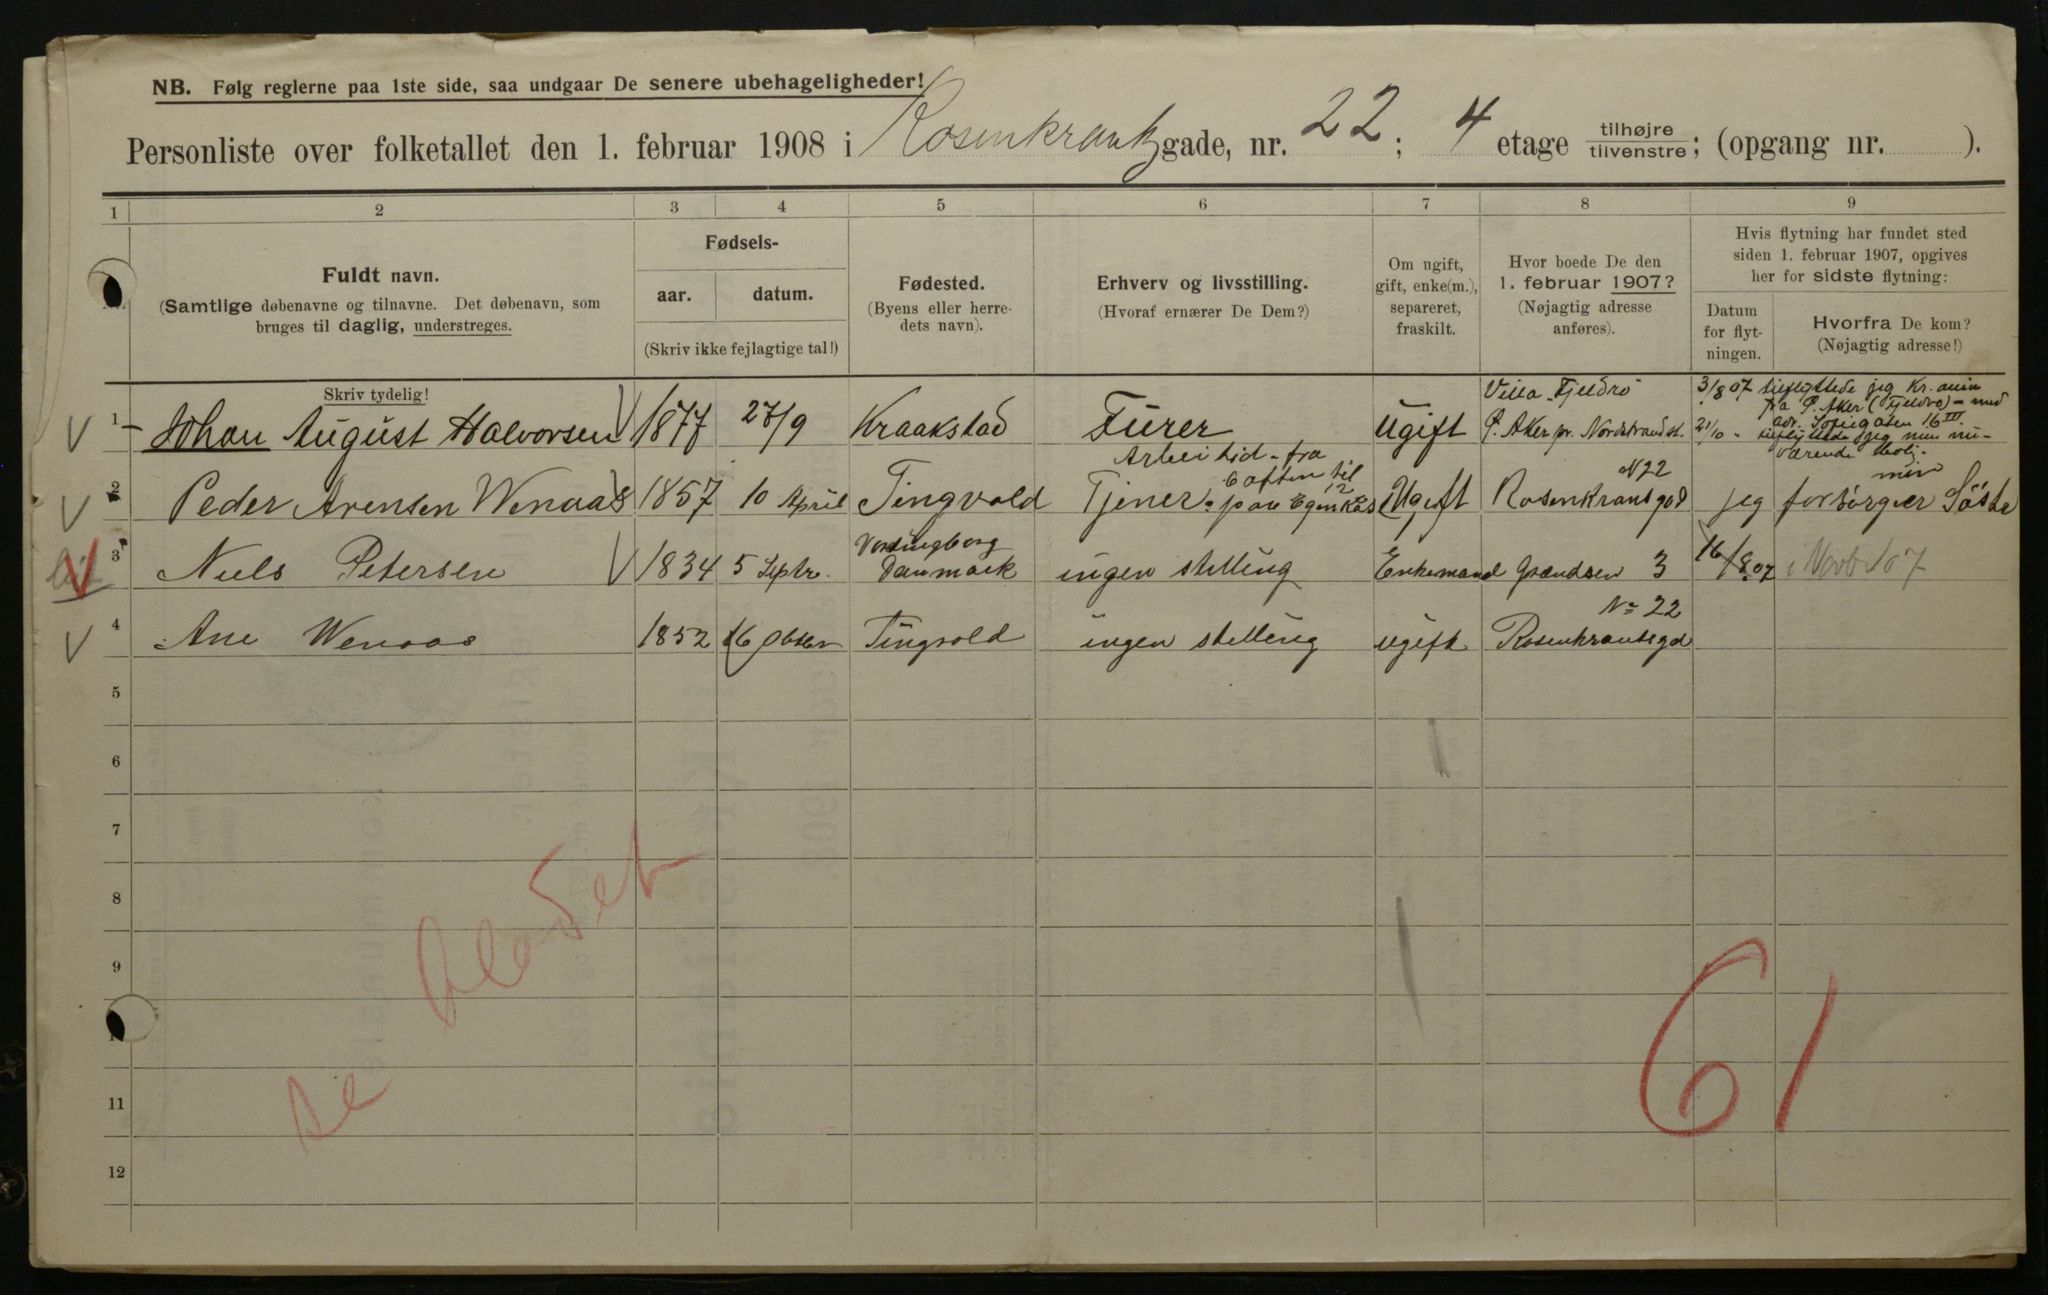 NB. Følg reglerne paa 1ste side, saa undgaar De senere ubehageligheder!
Personliste over folketallet den 1. februar 1908 i Rosenkrantzgade, nr. 22; 4 etage tilhøjre/tilvenstre; (opgang nr. ).
1 2 3 4 5 6 7 8 9
Fuldt navn.
(Samtlige døbenavne og tilnavne. Det døbenavn, som
bruges til daglig, understreges.
Skriv tydelig!
Fødsels-
aar. datum.
(Skriv ikke fejlagtige tal!)
Fødested.
(Byens eller herre-
dets navn).
Erhverv og livsstilling.
(Hvoraf ernærer De Dem?)
Om ugift,
gift, enke(m.),
separeret,
fraskilt.
Hvor boede De den
1. februar 1907?
(Nøjagtig adresse
anføres).
Hvis flytning har fundet sted
siden 1. februar 1907, opgives
her for sidste flytning:
Datum
for flyt-
ningen.
Hvorfra De kom?
(Nøjagtig adresse!)
1 Johan August Halvorsen 1877 27/9 Kraakstad Fürer Ugift Villa "Fjeldro" Ø. Aker pr. Nordstrand st. 3/8 07 tilflyttede jeg Kr.ania
fra Ø. Aker (Fjeldro) - med
adr. Sofiegaten 16 III
21/10 - tilflyttede jeg min nu-
værende bolig.
2 Peder Arensen Wenaas 1857 10 April Tingvold Tjener Arbeitid fra 6 aften til 12 paa Egen Kas Ugift N 22 Rosenkransgad jeg forsörger min Söster
3 Niels Petersen 1834 5 Septr. Vordingborg Danmark ingen stilling Enkemand Grændsen 3 16/8 07 i Novb 07
4 Ane Wenaas 1852 16 Obtbr Tingvold ingen stilling ugift No 22 Rosenkrantsgd
5
6
7
8
9
11
12
61